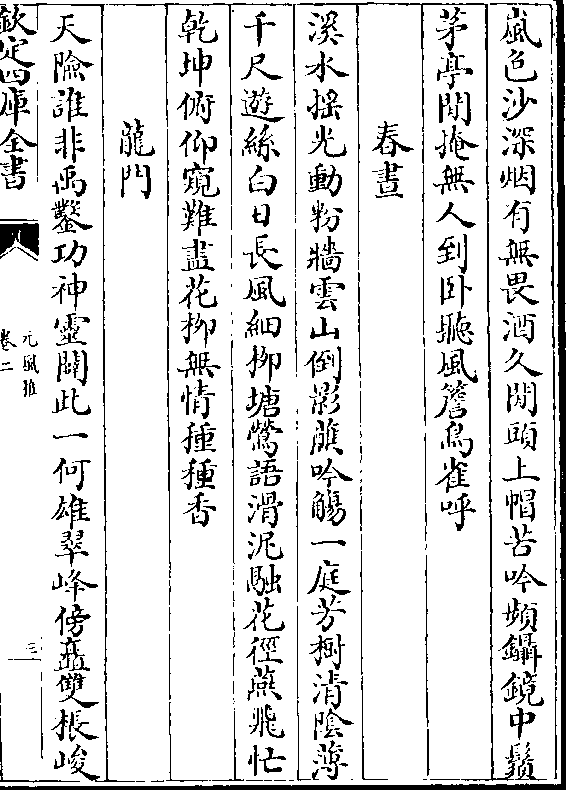 嵐色沙深烟有無畏酒久閒頭上帽苦吟頻鑷鏡中鬚
茅亭閒掩無人到卧聽風簷鳥雀呼
春晝
溪水摇光動粉牆雲山倒影蘸吟觴一庭芳樹清陰薄
千尺遊絲白日長風細柳塘鶯語滑泥融花徑燕飛忙
乾坤俯仰窺難盡花柳無情種種香
龍門
天險誰非禹鑿功神靈闢此一何雄翠峰傍矗雙棖峻
欽定四庫全書
元風雅
卷二
三